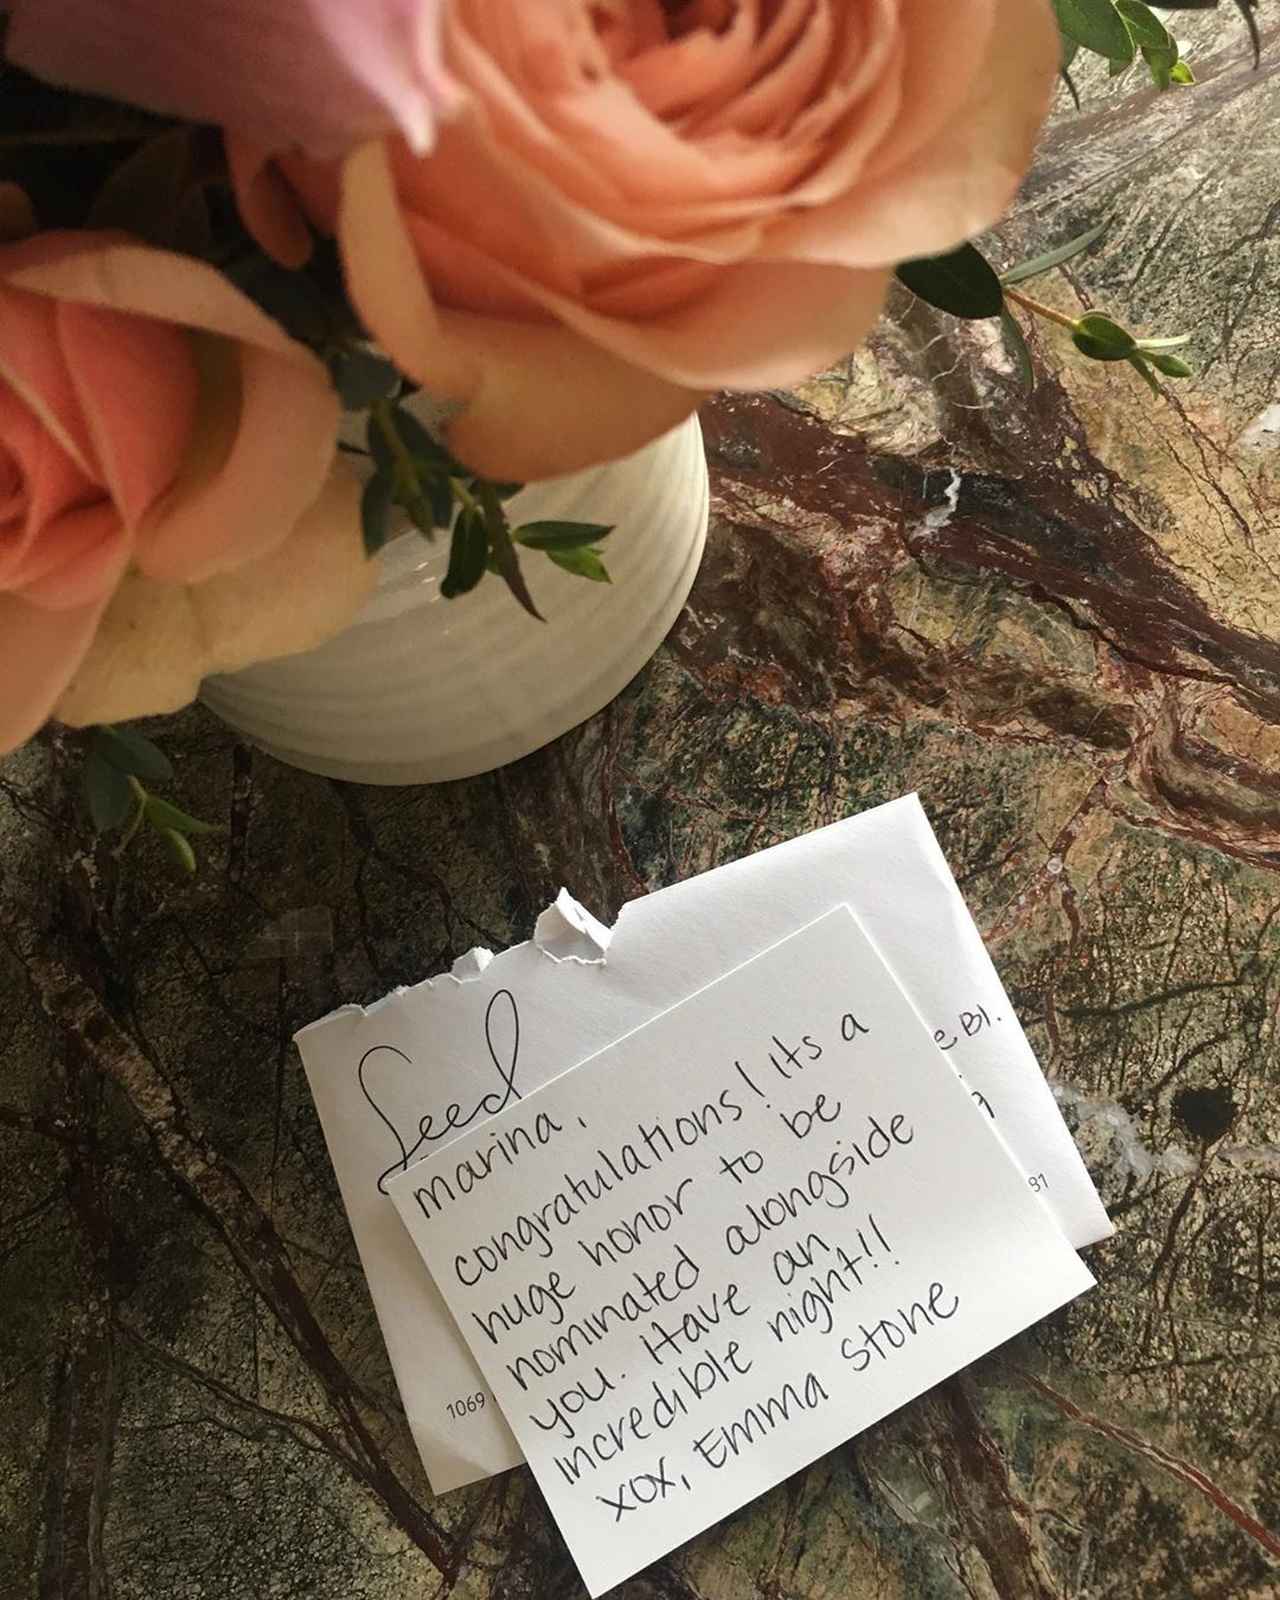 Seed
marina,
congratulations! Its a
huge honor to be
nominated alongside
you. Have an
incredible night!!
xox, Emma Stone
e Bl.
1069